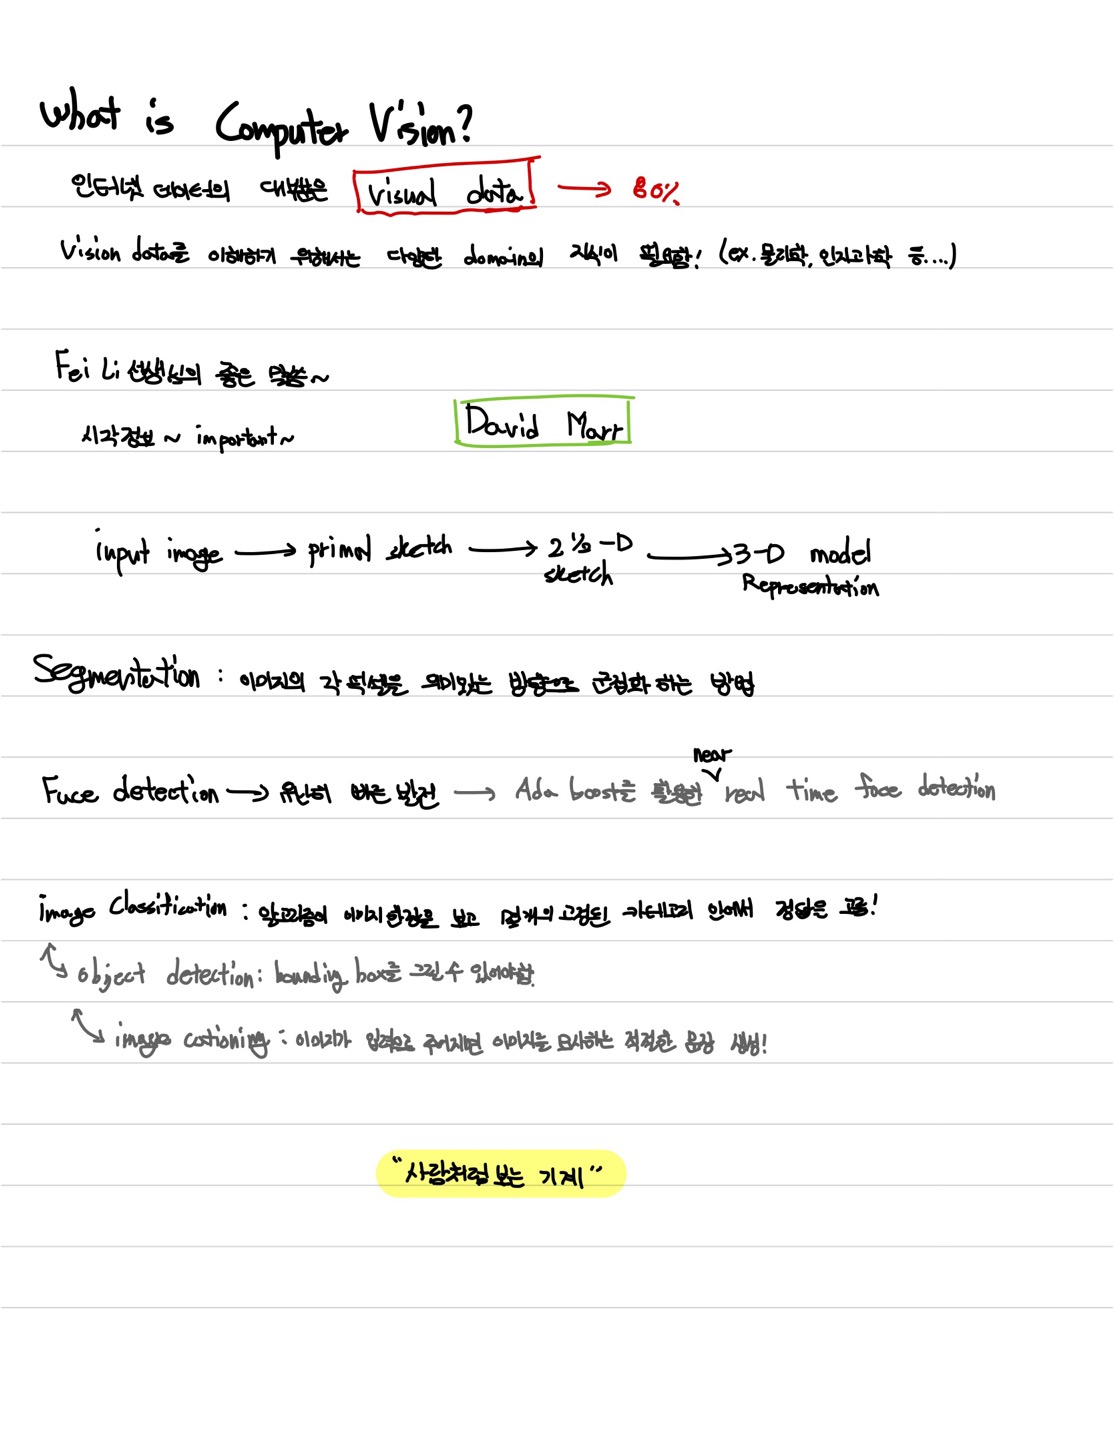 What is Computer Vision?
인터넷 데이터의 대부분은 visual data → 80%
Vision data를 이해하기 위해서는 다양한 domain의 지식이 필요함! (ex. 물리학, 인지과학 등....)
Fei Li 선생님의 좋은 말씀~
시각정보 ~ important~
David Marr
input image → primal sketch → 2 1/2-D sketch → 3-D model Representation
Segmentation : 이미지의 각 픽셀을 의미있는 방향으로 군집화 하는 방법
near
Face detection → 유난히 빠른 발전 → Ada boost를 활용한 real time face detection
image classification : 알고리즘이 이미지 한장을 보고 몇개의 고정된 카테고리 안에서 정답을 고름!
object detection : bounding box를 그릴 수 있어야함.
image cationing : 이미지가 입력으로 주어지면 이미지를 묘사하는 적절한 문장 생성!
"사람처럼 보는 기계"